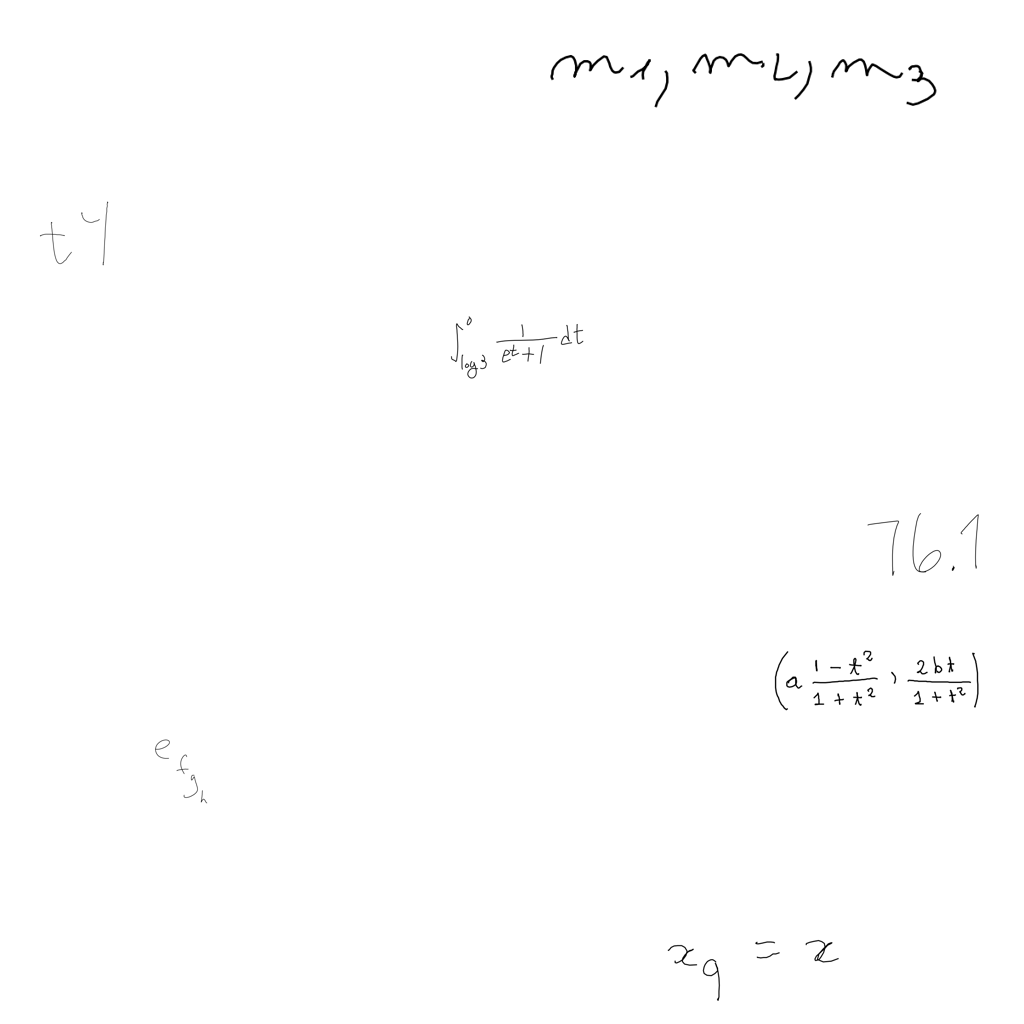 m_1, m_2, m_3
t^4
\int_{\log 3}^{0} \frac{1}{e^t+1} dt
76.1
\left(a \frac{1-t^2}{1+t^2}, \frac{2bt}{1+t^2}\right)
e_{f_{g_h}}
x_q = x